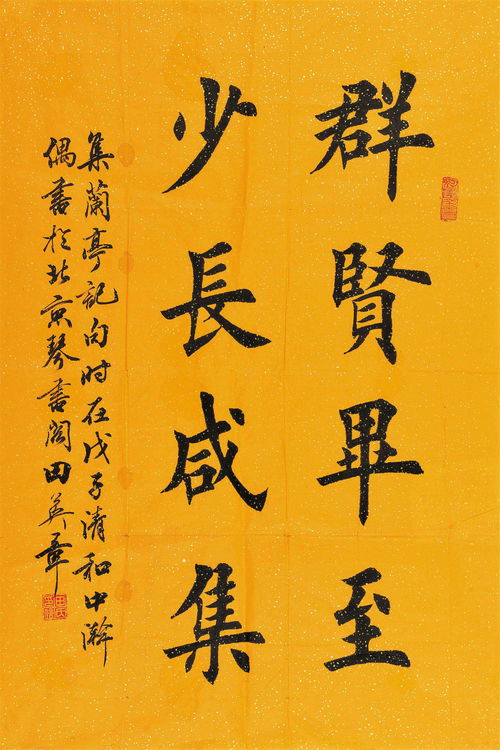 群賢畢至
少長咸集
集蘭亭記句时在戊子清和中澣
偶書於北京琴書阁田英章